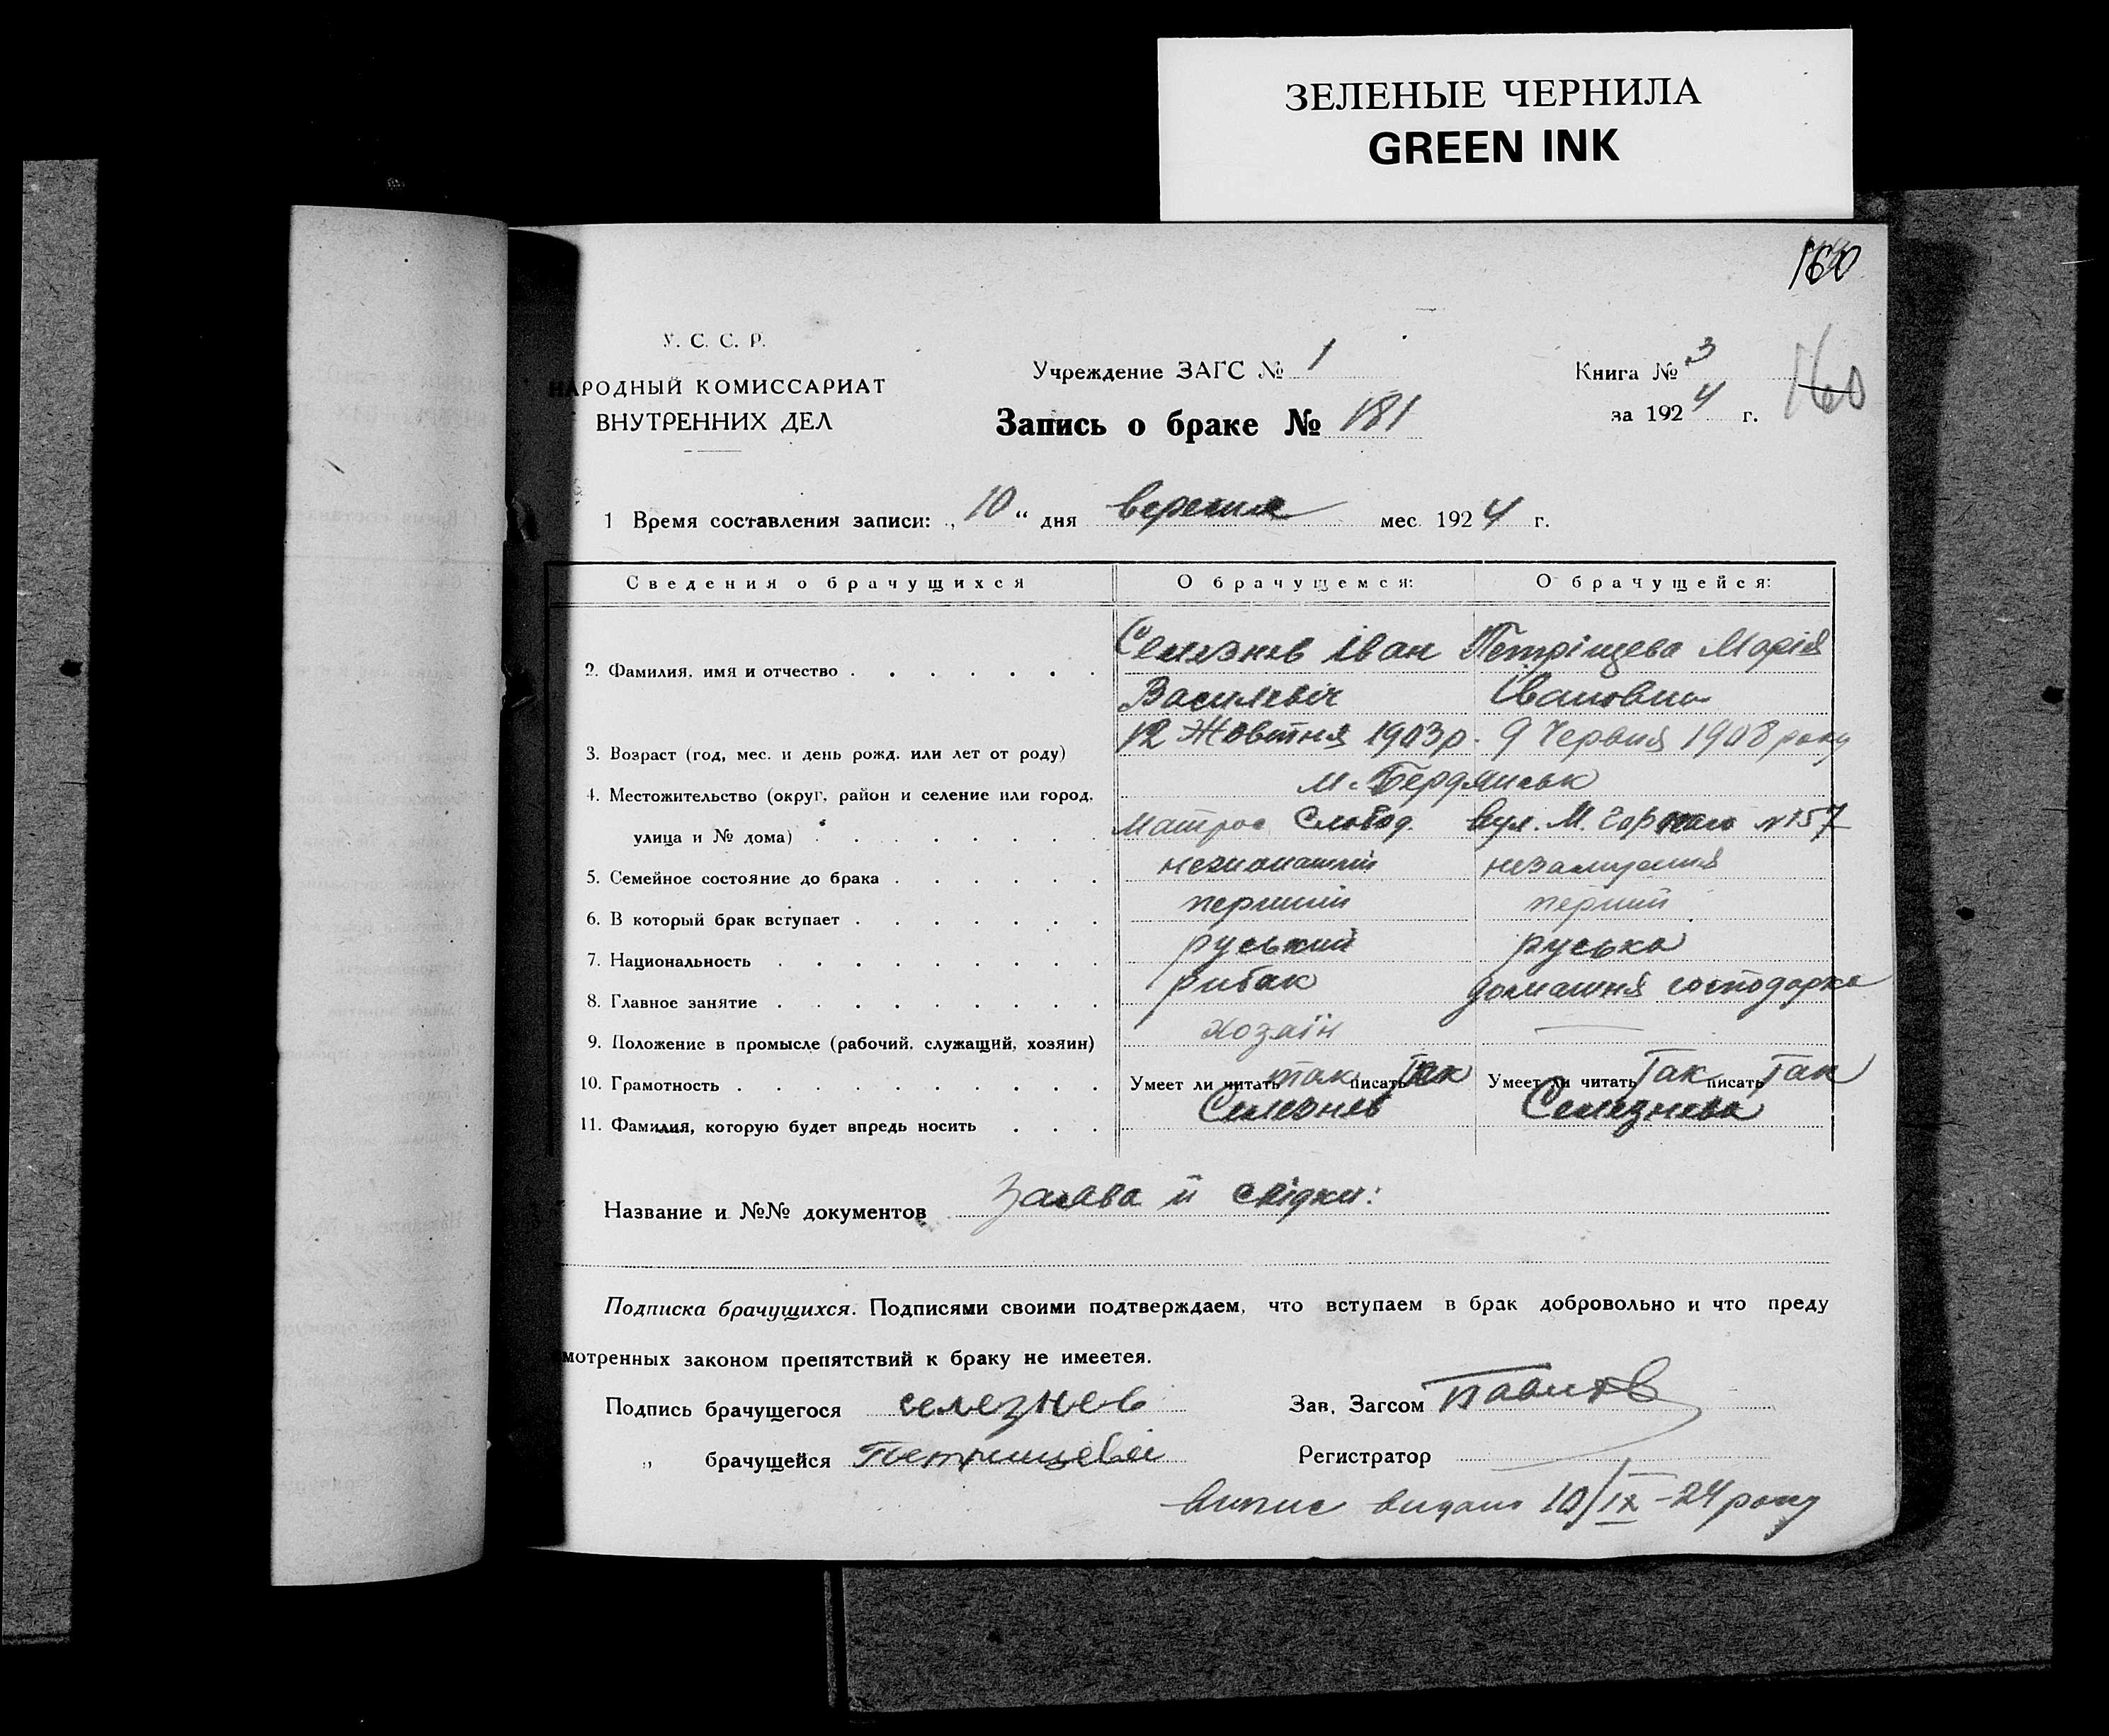 ЗЕЛЕНЫЕ ЧЕРНИЛА
GREEN INK
160
У. С. С. Р.
НАРОДНЫЙ КОМИССАРИАТ
ВНУТРЕННИХ ДЕЛ
Учреждение ЗАГС № 1
Запись о браке № 181
Книга № 3
за 1924 г.
160
1 Время составления записи: „10“ дня вересня мес. 1924 г.
Сведения о брачущихся О брачущемся: О брачущейся:
2. Фамилия, имя и отчество Селезнев Іван Петріщева Марія
Василевіч Івановна
3. Возраст (год, мес. и день рожд. или лет от роду) 12 Жовтня 1903 р. 9 Червня 1908 року
4. Местожительство (округ, район и селение или город, м. Бердянськ
улица и № дома) Матрос. Слобод. вул. М. Горького №157
5. Семейное состояние до брака нежонатий незамужня
6. В который брак вступает перший перший
7. Национальность руський руська
8. Главное занятие рибак домашня господарка
9. Положение в промысле (рабочий, служащий, хозяин) хозяїн —
10. Грамотность Умеет ли читать так писать так Умеет ли читать Так писать Так
11. Фамилия, которую будет впредь носить Селезнев Селезнева
Название и №№ документов Заява й свідки:
Подписка брачущихся. Подписями своими подтверждаем, что вступаем в брак добровольно и что преду
мотренных законом препятствий к браку не имеется.
Подпись брачущегося селезнев Зав. Загсом
„ брачущейся Петрищева Регистратор
випис видано 10/IX-24 року